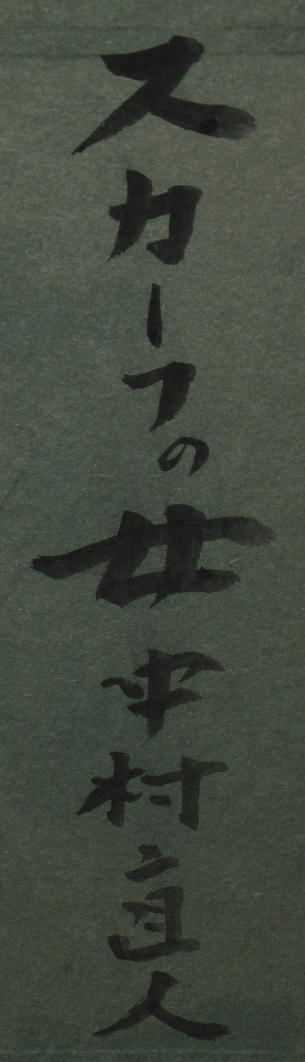 スカーフの女中村直人